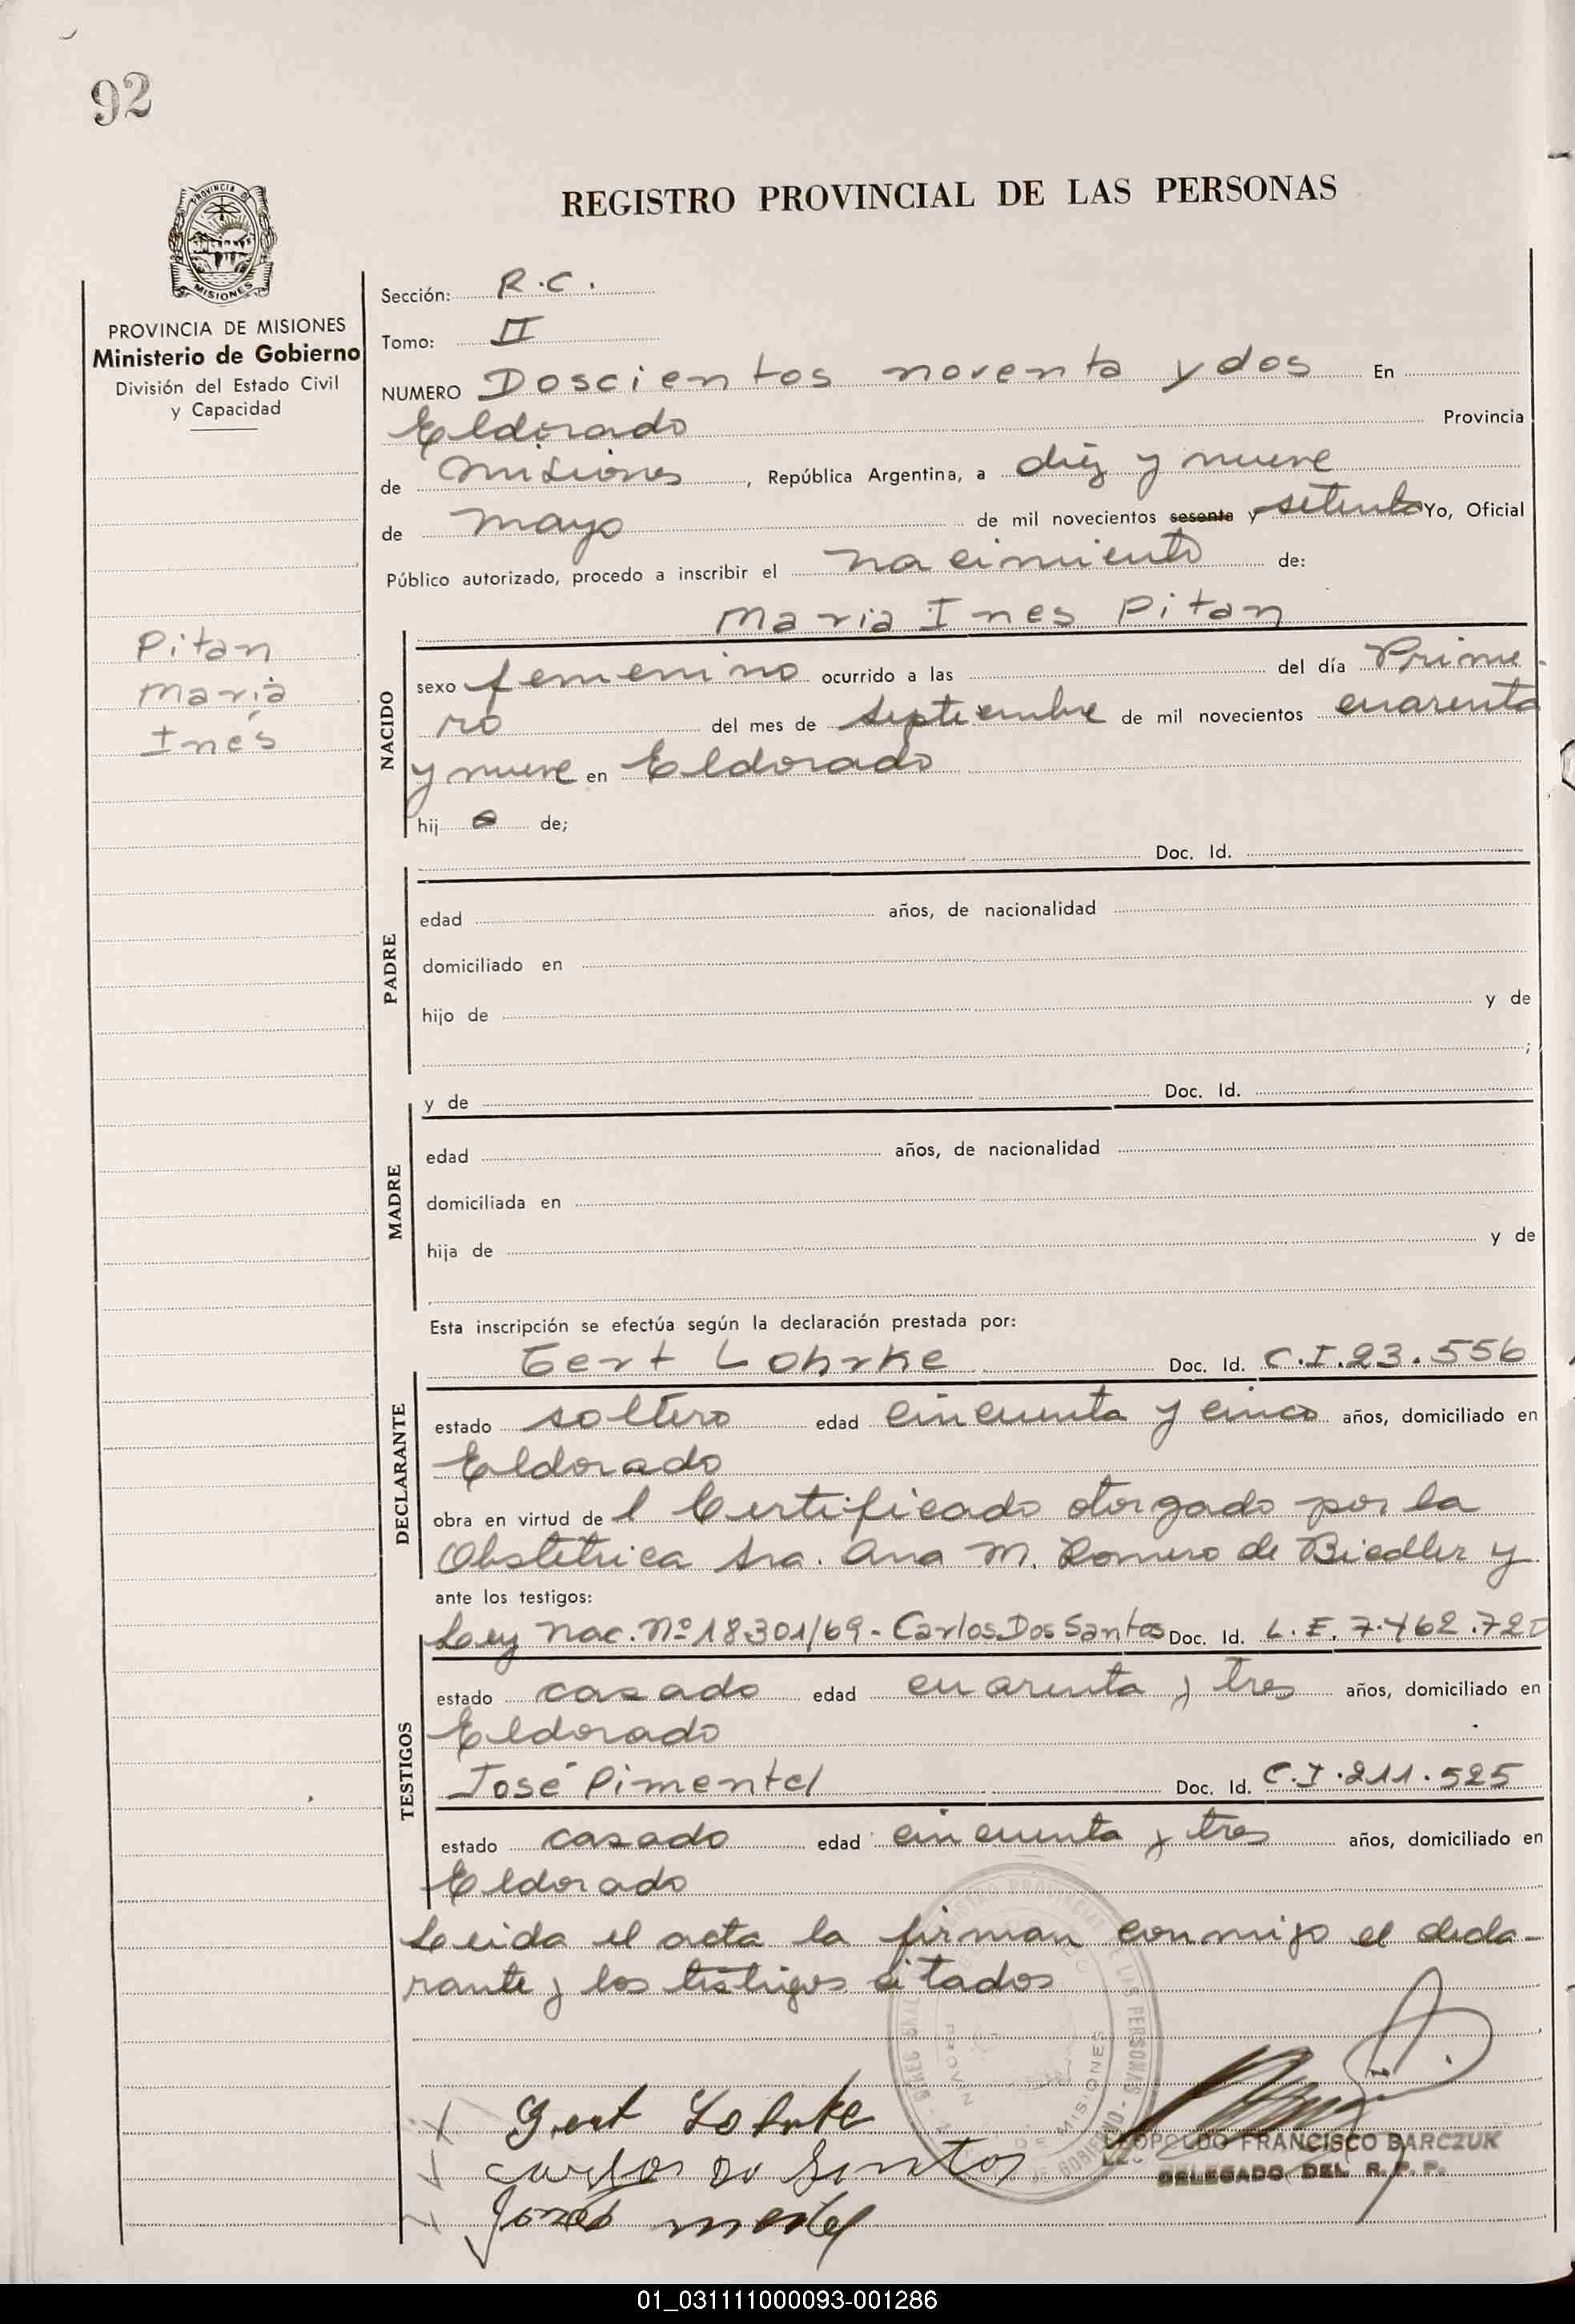 92
PROVINCIA DE MISIONES
REGISTRO PROVINCIAL DE LAS PERSONAS
PROVINCIA DE MISIONES
Ministerio de Gobierno
División del Estado Civil
y Capacidad
Pitan
Maria
Inés
Sección: R.C.
Tomo: II
NUMERO Doscientos noventa y dos En
Eldorado Provincia
de Misiones, República Argentina, a diéz y nueve
de mayo de mil novecientos sesenta y setenta Yo, Oficial
Público autorizado, procedo a inscribir el nacimiento de:
Maria Ines Pitan
NACIDO
sexo femenino ocurrido a las del día Prime-
ro del mes de septiembre de mil novecientos cuarenta
y nueve en Eldorado
hij a de;
Doc. Id.
PADRE
edad años, de nacionalidad
domiciliado en
hijo de y de
;
MADRE
y de Doc. Id.
edad años, de nacionalidad
domiciliada en
hija de y de
Esta inscripción se efectúa según la declaración prestada por:
DECLARANTE
Gert Lohrke Doc. Id. C.I.23.556
estado soltero edad cincuenta y cinco años, domiciliado en
Eldorado
obra en virtud de l Certificado otorgado por la
Obstétrica Sra. Ana M. Romero de Biedler y
ante los testigos:
TESTIGOS
Ley Nac. Nº 18301/69 - Carlos Dos Santos Doc. Id. L.E. 7.462.72
estado casado edad cuarenta y tres años, domiciliado en
Eldorado
José Pimentel Doc. Id. C.I.211.525
estado casado edad cincuenta y tres años, domiciliado en
Eldorado
Leida el acta la firman conmigo el decla-
rante y los testigos citados
Gert Lohrke
Carlos Do Santos
LEOPOLDO FRANCISCO BARCZUK
DELEGADO DEL R.P.P.
MISIONES
01_031111000093-001286